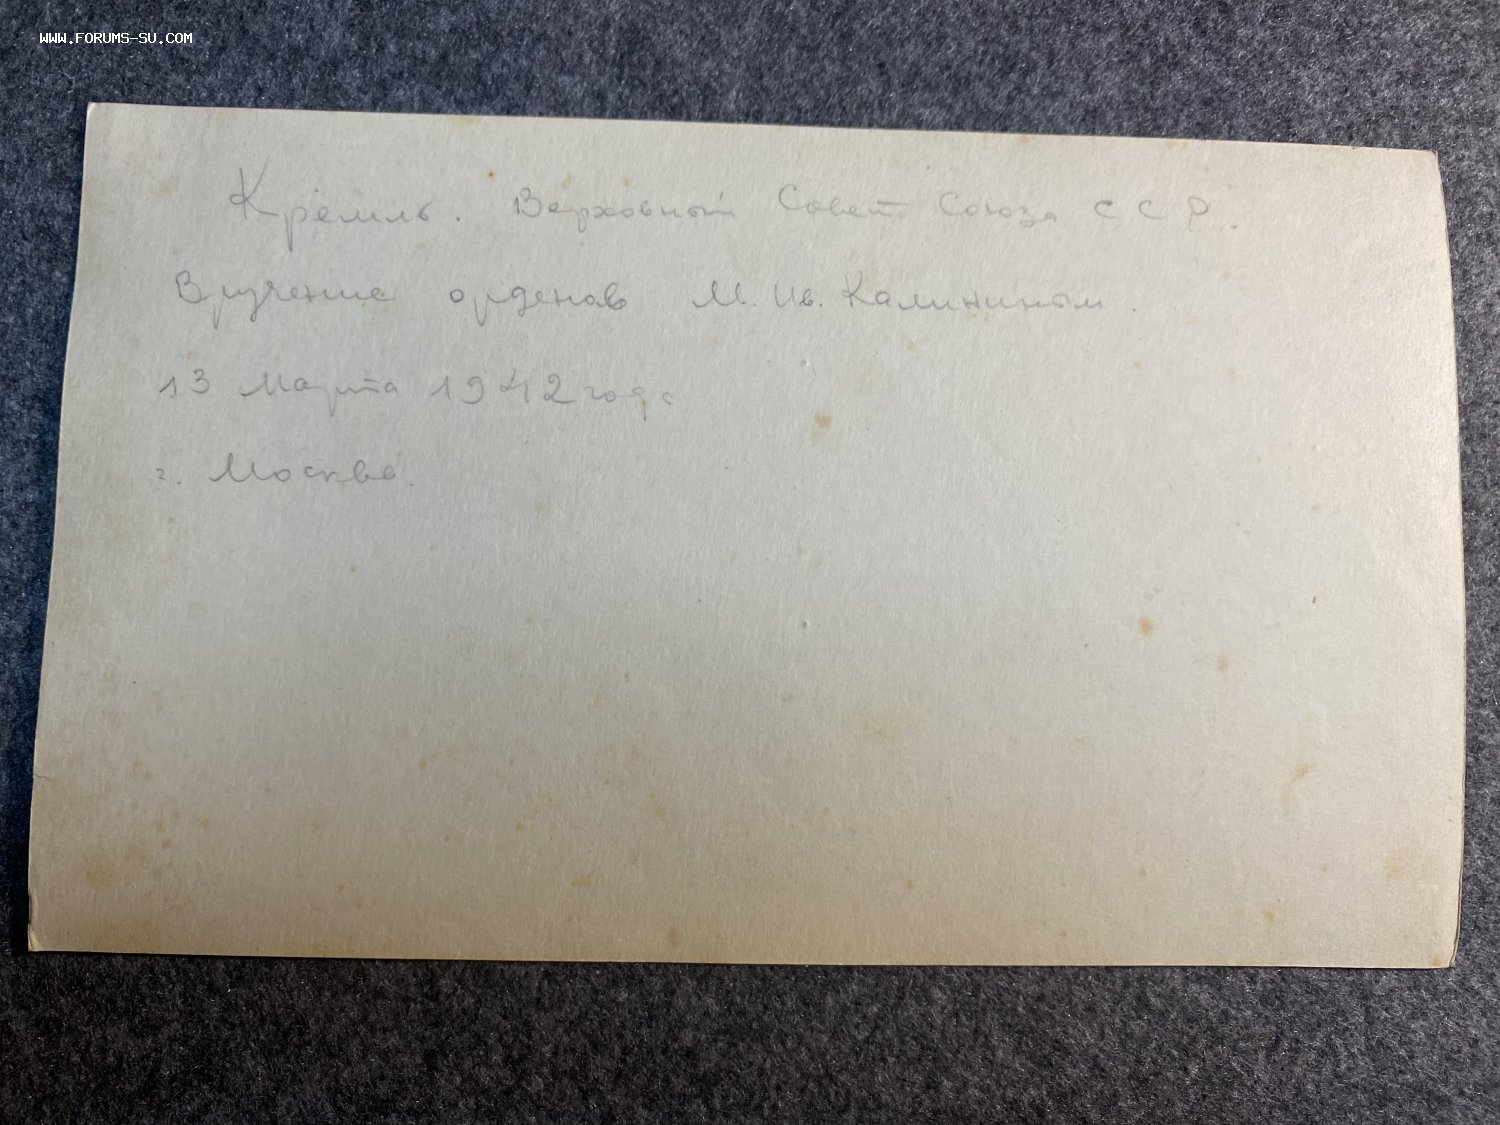 WWW.FORUMS-SU.COM
Кремль. Верховный Совет Союза ССР.
Вручение орденов М. Ив. Калининым.
13 Марта 1942 года
г. Москва.